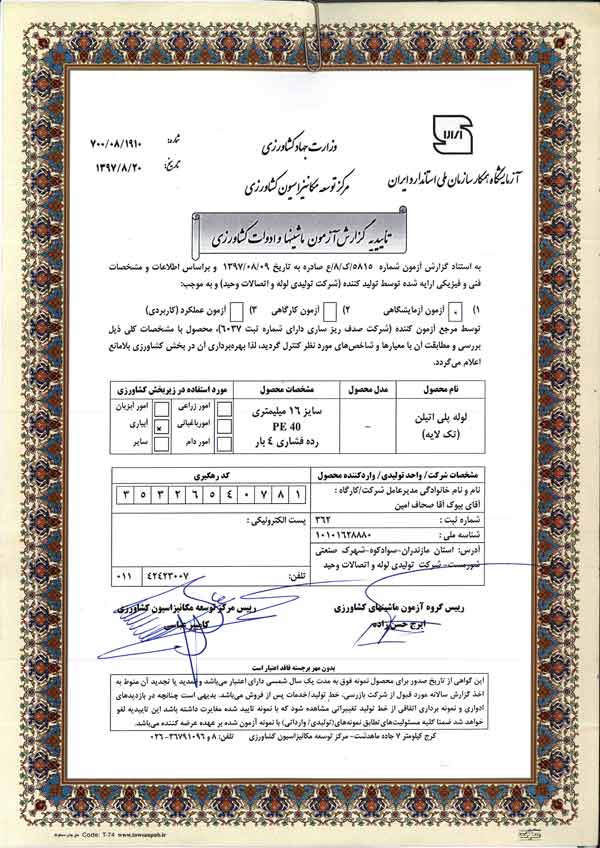 شماره: ۷۰۰/۰۸/۱۹۱۰
تاریخ: ۱۳۹۷/۸/۲۰
وزارت جهاد کشاورزی
مرکز توسعه مکانیزاسیون کشاورزی
آزمایشگاه همکار سازمان ملی استاندارد ایران
تاییدیه گزارش آزمون ماشینها و ادوات کشاورزی
به استناد گزارش آزمون شماره ۵۸۱۵/ک/۸/ع صادره به تاریخ ۱۳۹۷/۰۸/۰۹ و براساس اطلاعات و مشخصات
فنی و فیزیکی ارایه شده توسط تولید کننده (شرکت تولیدی لوله و اتصالات وحید) و به موجب:
۱) آزمون آزمایشگاهی ۲) آزمون کارگاهی ۳) آزمون عملکرد (کاربردی)
توسط مرجع آزمون کننده (شرکت صدف ریز ساری دارای شماره ثبت ۶۰۳۷)، محصول با مشخصات کلی ذیل
بررسی و مطابقت آن با معیارها و شاخص‌های مورد نظر کنترل گردید، لذا بهره‌برداری آن در بخش کشاورزی بلامانع
اعلام می‌گردد.
نام محصول مدل محصول مشخصات محصول مورد استفاده در زیربخش کشاورزی
لوله پلی اتیلن
(تک لایه)
–
سایز ۱۶ میلیمتری
PE 40
رده فشاری ۴ بار
امور زراعی امور آبزیان
امورباغبانی آبیاری x
امور دام سایر
مشخصات شرکت/ واحد تولیدی/ واردکننده محصول کد رهگیری
نام و نام خانوادگی مدیرعامل شرکت/کارگاه :
آقای بیوک آقا صحاف امین
۳ ۵ ۳ ۲ ۶ ۵ ۴ ۰ ۷ ۸ ۱
شماره ثبت : ۳۶۲
پست الکترونیکی:
شناسه ملی : ۱۰۱۰۱۶۲۸۸۸۰
آدرس: استان مازندران-سوادکوه-شهرک صنعتی
شورمست- شرکت تولیدی لوله و اتصالات وحید
تلفن: ۴۲۴۲۳۰۰۷ ۰۱۱
رییس گروه آزمون ماشینهای کشاورزی
ایرج حسن‌زاده
رییس مرکز توسعه مکانیزاسیون کشاورزی
کامبیز عباسی
بدون مهر برجسته فاقد اعتبار است
این گواهی از تاریخ صدور برای محصول نمونه فوق به مدت یک سال شمسی دارای اعتبار می‌باشد و تمدید یا تجدید آن منوط به
اخذ گزارش سالانه مورد قبول از شرکت بازرسی، خط تولید/خدمات پس از فروش می‌باشد. بدیهی است چنانچه در بازدیدهای
ادواری و نمونه برداری اتفاقی از خط تولید تغییراتی مشاهده شود که با نمونه تایید شده مغایرت داشته باشد این تاییدیه لغو
خواهد شد ضمنا کلیه مسئولیت‌های تطابق نمونه‌های (تولیدی/ وارداتی) با نمونه آزمون شده بر عهده عرضه کننده می‌باشد.
کرج کیلومتر ۷ جاده ماهدشت- مرکز توسعه مکانیزاسیون کشاورزی تلفن: ۸ و ۳۶۷۹۱۰۹۶-۰۲۶
Code: T-74 www.towsanpub.ir